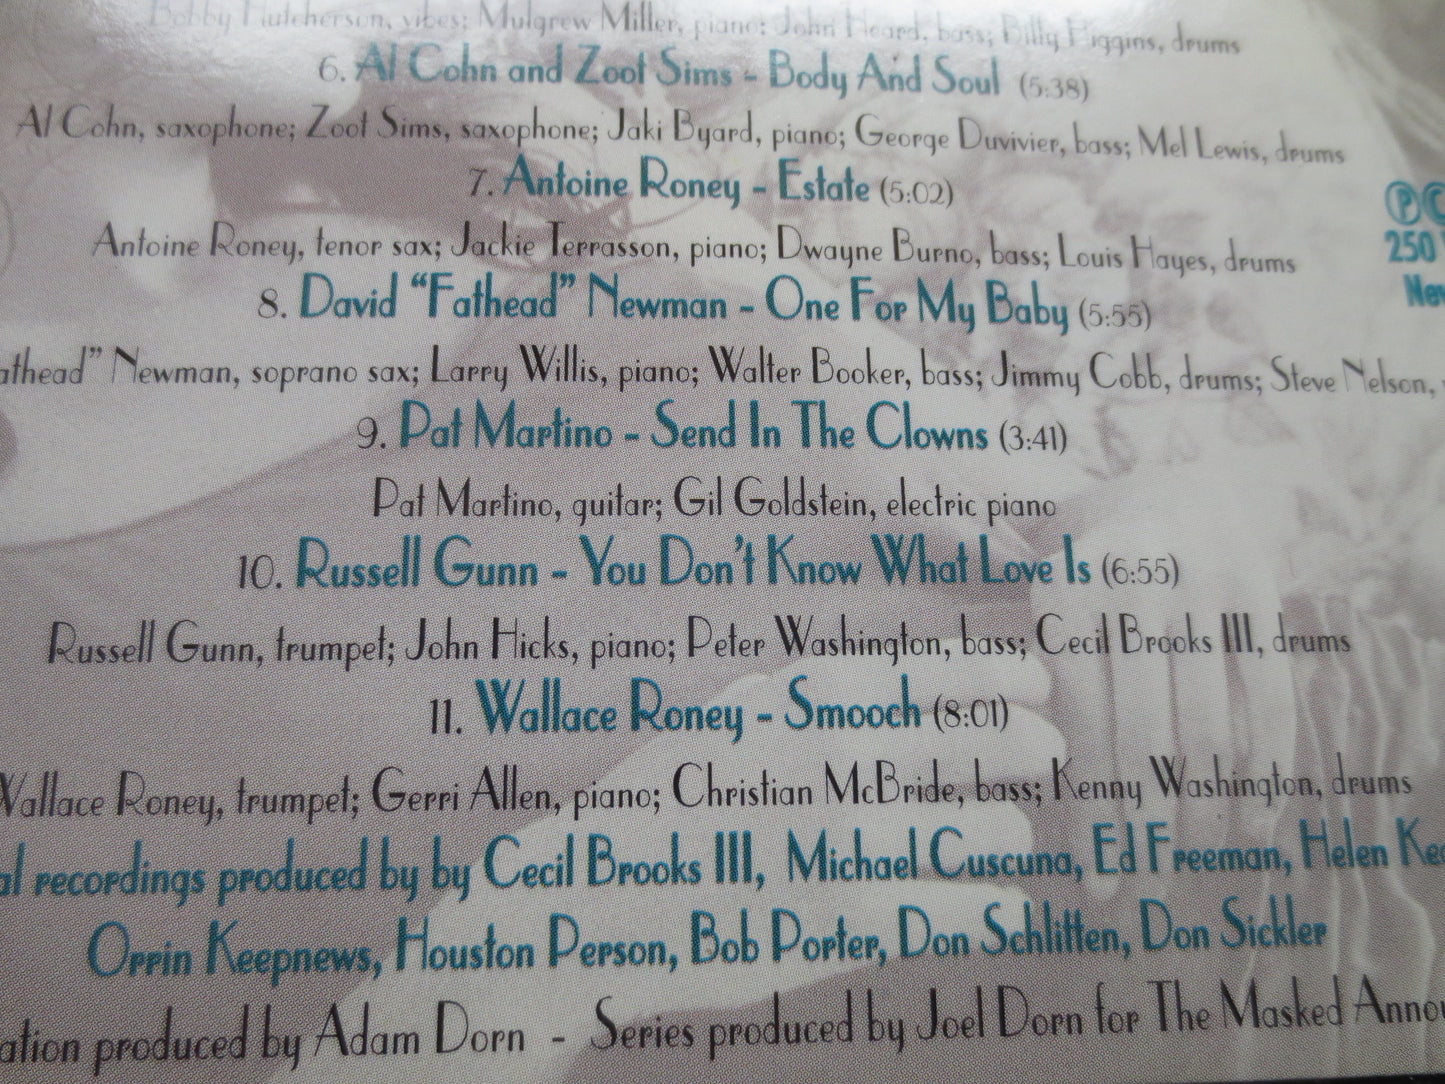 Bobby Hutcherson, vibes; Mulgrew Miller, piano; John Heard, bass; Billy Higgins, drums
6. Al Cohn and Zoot Sims - Body And Soul (5:38)
Al Cohn, saxophone; Zoot Sims, saxophone; Jaki Byard, piano; George Duvivier, bass; Mel Lewis, drums
7. Antoine Roney - Estate (5:02)
Antoine Roney, tenor sax; Jackie Terrasson, piano; Dwayne Burno, bass; Louis Hayes, drums
8. David "Fathead" Newman - One For My Baby (5:55)
athead" Newman, soprano sax; Larry Willis, piano; Walter Booker, bass; Jimmy Cobb, drums; Steve Nelson,
9. Pat Martino - Send In The Clowns (3:41)
Pat Martino, guitar; Gil Goldstein, electric piano
10. Russell Gunn - You Don't Know What Love Is (6:55)
Russell Gunn, trumpet; John Hicks, piano; Peter Washington, bass; Cecil Brooks III, drums
11. Wallace Roney - Smooch (8:01)
Wallace Roney, trumpet; Gerri Allen, piano; Christian McBride, bass; Kenny Washington, drums
al recordings produced by by Cecil Brooks III, Michael Cuscuna, Ed Freeman, Helen Kee
Orrin Keepnews, Houston Person, Bob Porter, Don Schlitten, Don Sickler
ation produced by Adam Dorn - Series produced by Joel Dorn for The Masked Anno
℗©
250
New